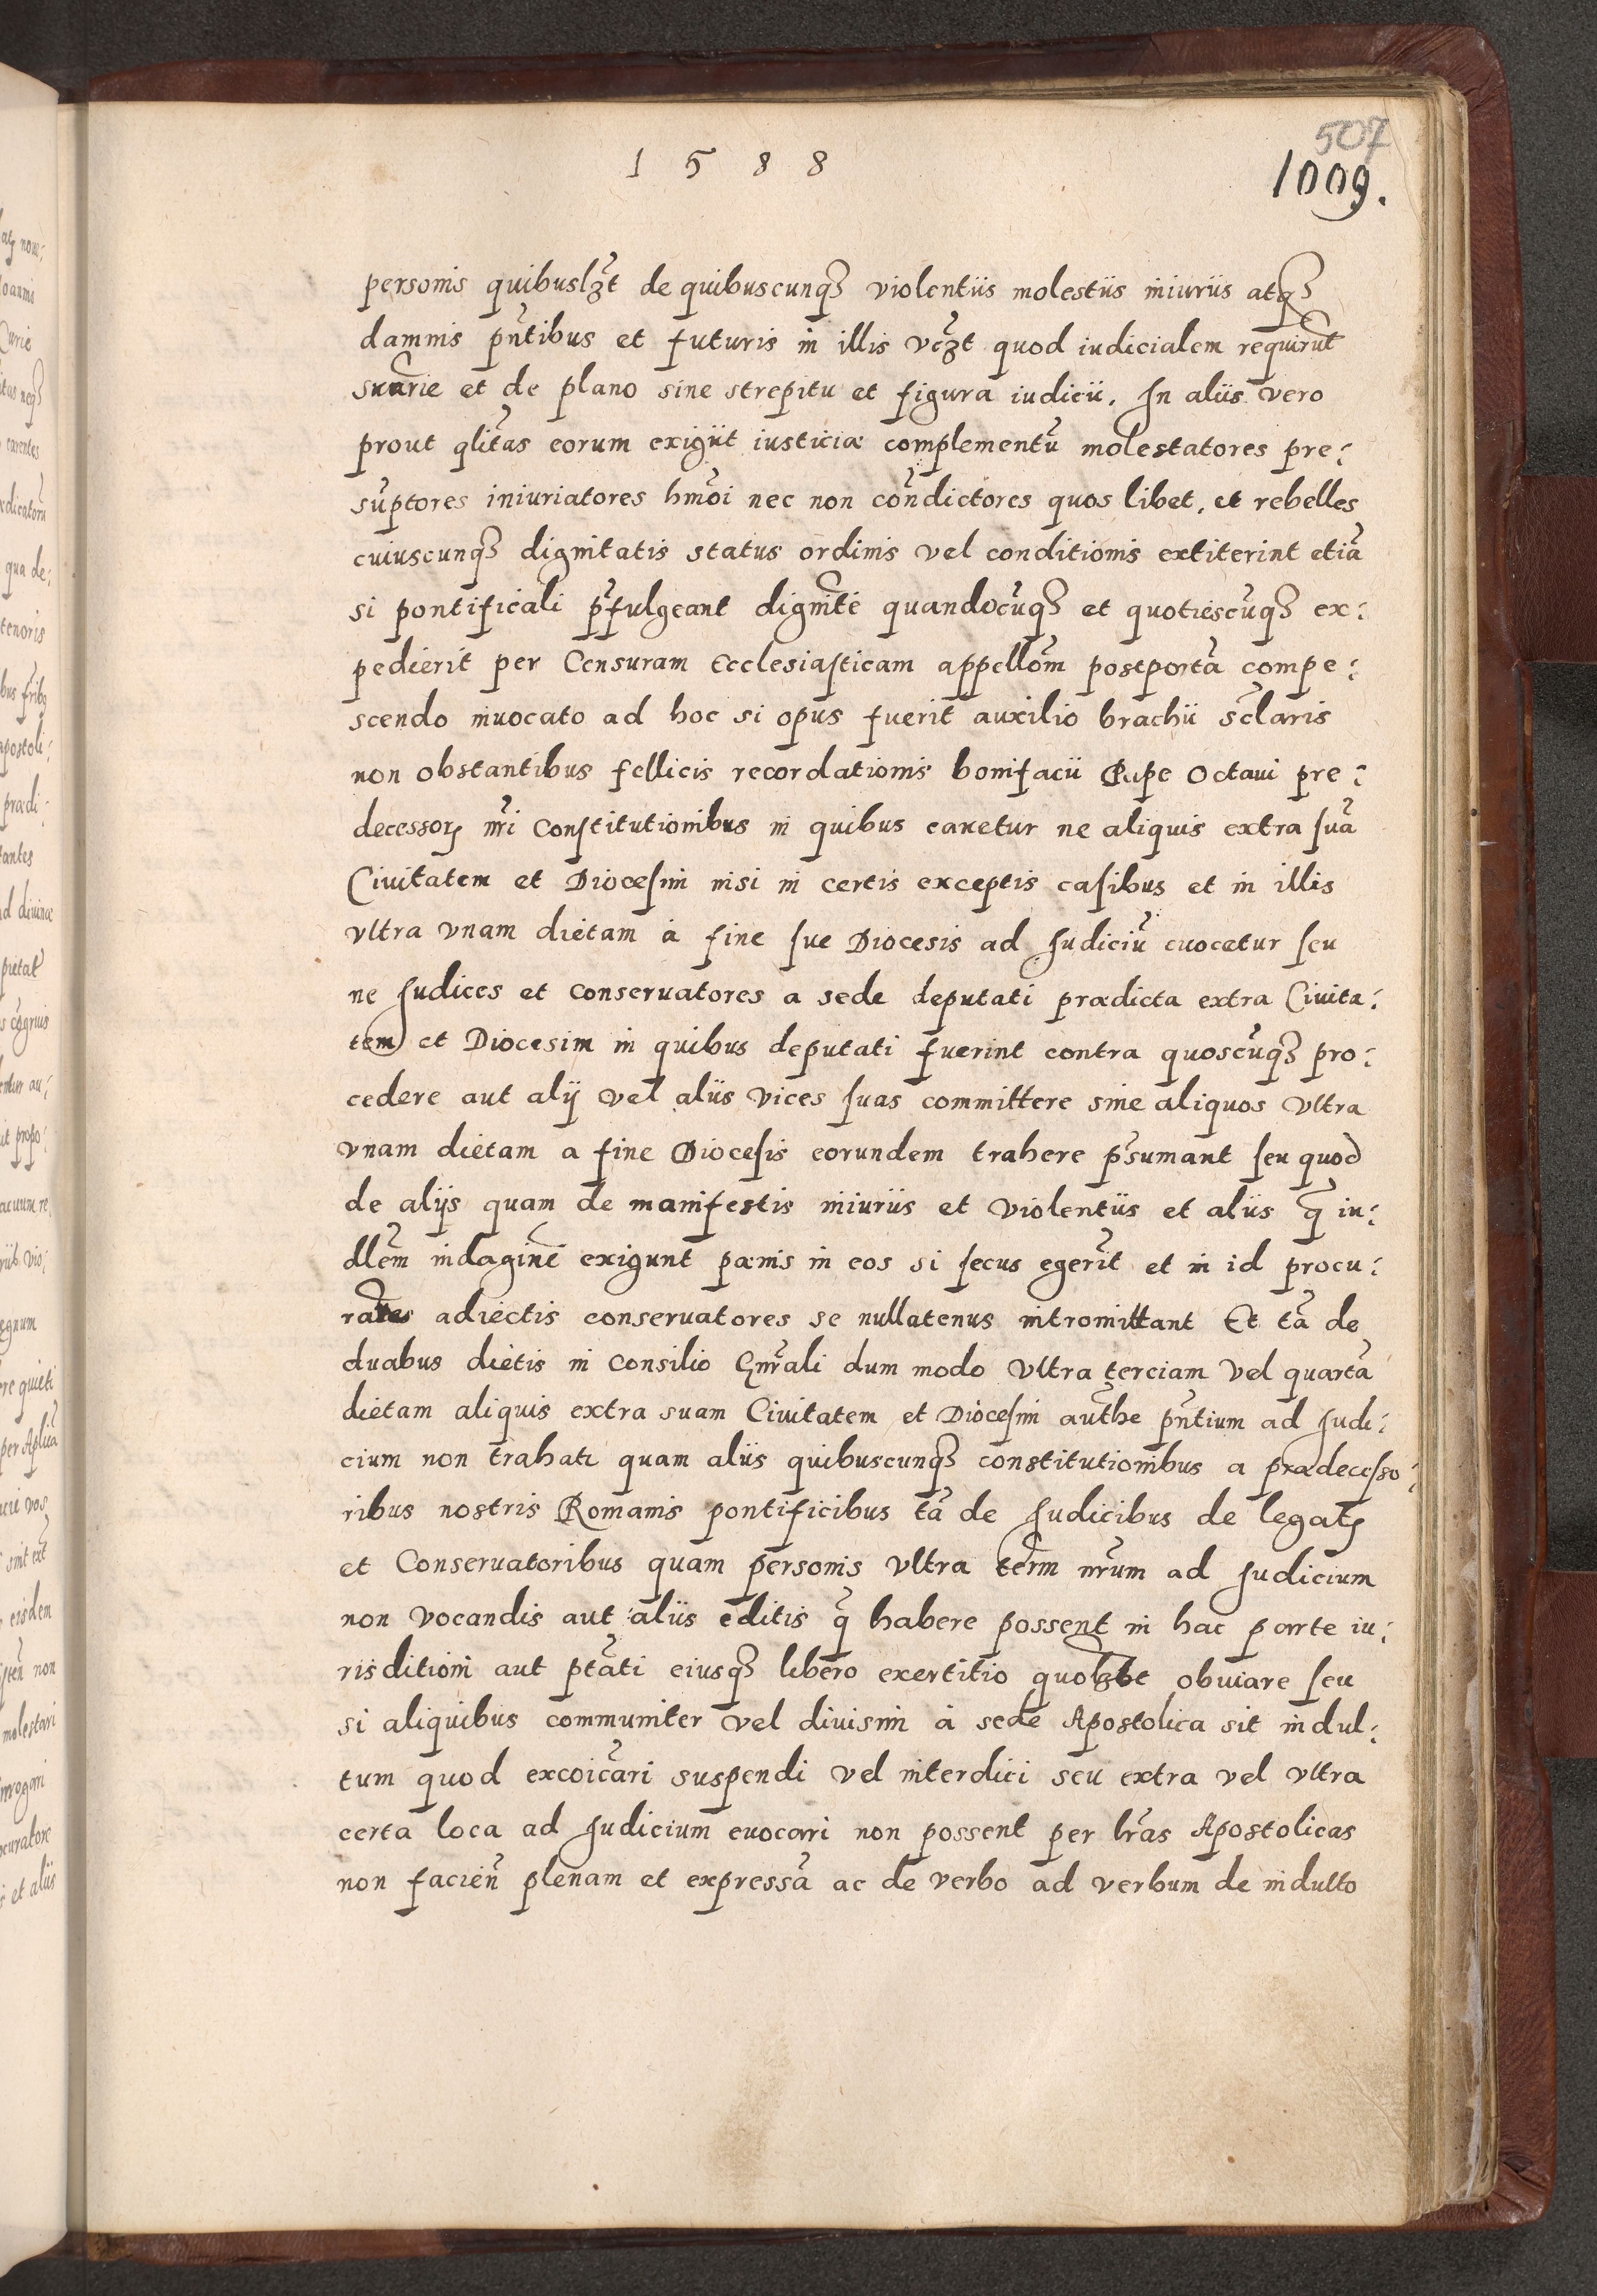 1588
507
1009.
personis quibuslꝫt de quibuscunqꝫ violentiis molestiis iniuriis atqꝫ
damnis pñtibus et futuris in illis vcꝫt quod iudicialem requirũt
suãrie et de plano sine strepitu et figura iudicii. In aliis vero
prout qlitas eorum exigũt iusticiæ complementũ molestatores pre:
sũptores iniuriatores hmõi nec non cõndictores quos libet, et rebelles
cuiuscunqꝫ dignitatis status ordinis vel conditionis extiterint etiã
si pontificali p̃fulgeant dignit̃e quandocũqꝫ et quotiescũqꝫ ex:
pedierit per Censuram Ecclesiasticam appellõm postpositã compe:
scendo inuocato ad hoc si opus fuerit auxilio brachii sc̃laris
non obstantibus fellicis recordationis bonifacii Pape Octaui pre:
decessorꝭ nr̃i Constitutionibus in quibus cauetur ne aliquis extra suã
Ciuitatem et Diocesim nisi in certis exceptis casibus et in illis
vltra vnam dietam à fine sue Diocesis ad Judiciũ euocetur seu
ne Judices et conseruatores a sede deputati prædicta extra Ciuita:
tem et Diocesim in quibus deputati fuerint contra quoscũqꝫ pro:
cedere aut alij vel aliis vices suas committere siue aliquos vltra
vnam dietam a fine Diocesis eorundem trahere p̃sumant seu quod
de alijs quam de manifestis iniuriis et violentiis et aliis q̃ iu:
dlẽm indaginẽ exigunt pœnis in eos si secus egerĩt et in id procu:
rãtes adiectis conseruatores se nullatenus intromittant Et tã de
duabus dietis in Consilio gñrali dum modo vltra terciam vel quartã
dietam aliquis extra suam Ciuitatem et Diocesim autħe pñtium ad Judi:
cium non trahatr quam aliis quibuscunqꝫ constitutionibus a prædecesso:
ribus nostris Romanis pontificibus tã de Judicibus de legatꝭ
et Conseruatoribus quam personis vltra term̃ nr̃um ad Judicium
non vocandis aut aliis editis q̃ habere possent in hac parte iu:
risditioni aut ptãti eiusqꝫ libero exertitio quolꝫbt obuiare seu
si aliquibus communiter vel diuisim à sede Apostolica sit indul:
tum quod excoicãri suspendi vel interdici seu extra vel vltra
certa loca ad Judicium euocari non possent per lr̃as Apostolicas
non facieñ plenam et expressã ac de verbo ad verbum de indulto